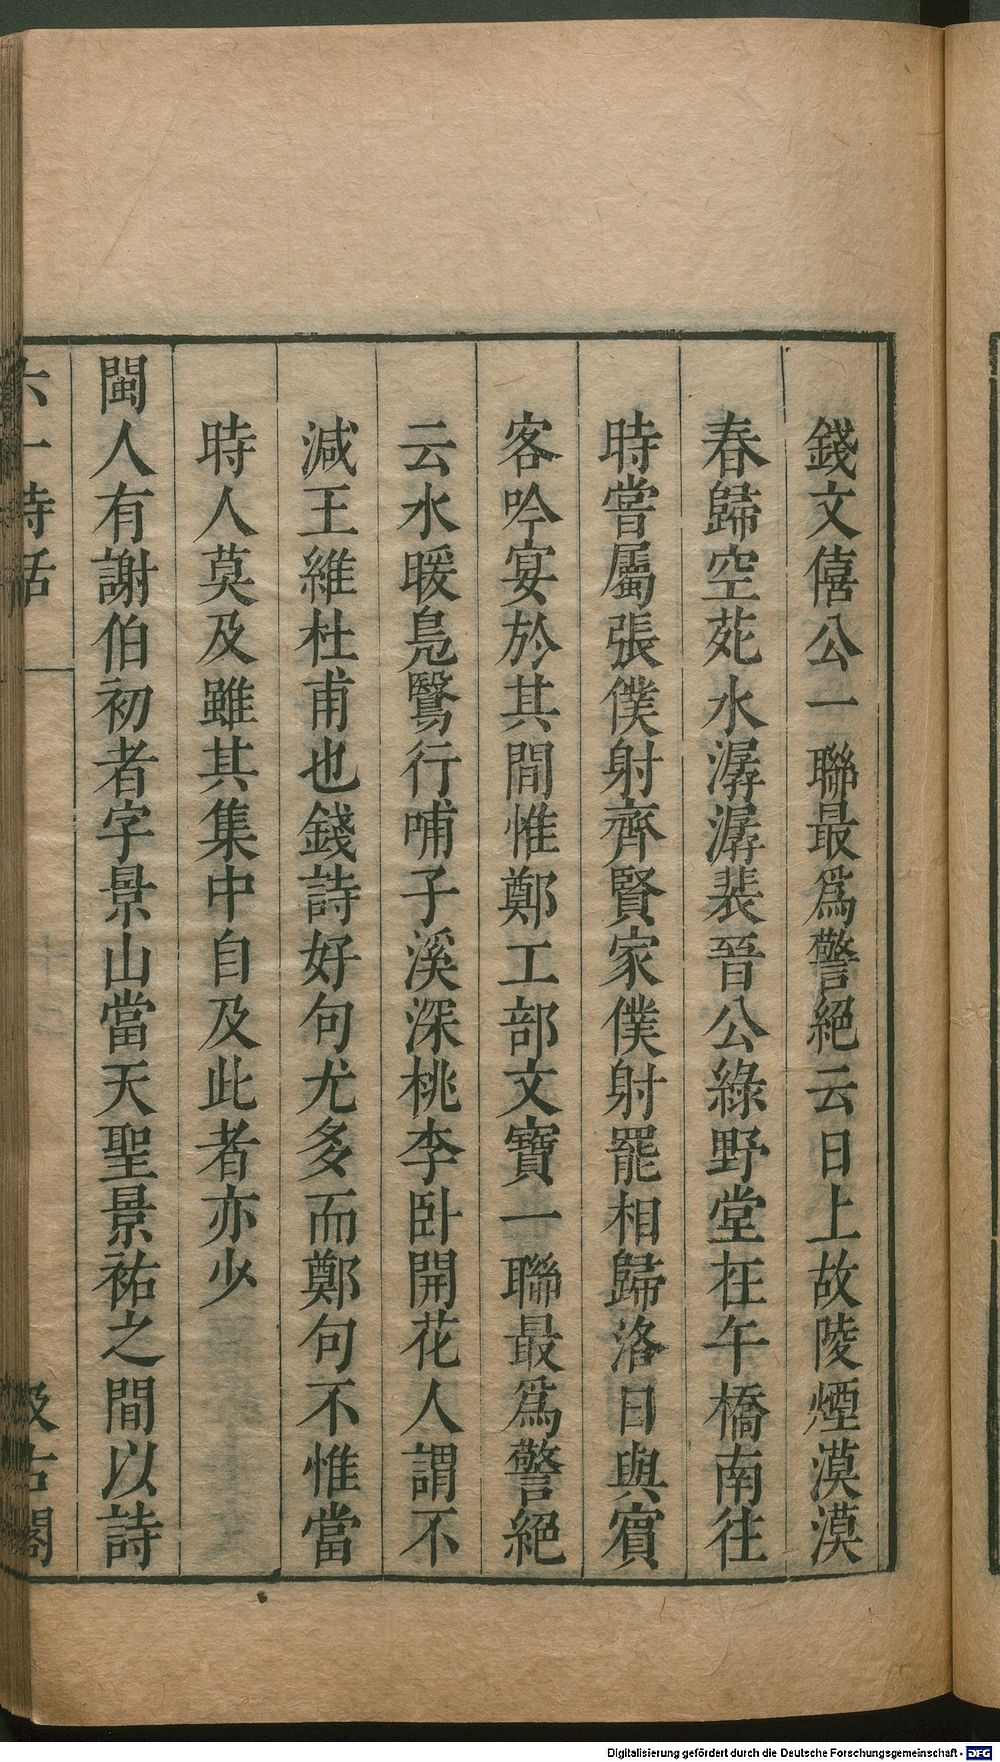 錢文僖公一聯最爲警絕云日上故陵煙漠漠
春歸空苑水潺潺裴晉公綠野堂在午橋南往
時嘗屬張僕射齊賢家僕射罷相歸洛日與賓
客吟宴於其間惟鄭工部文寶一聯最爲警絕
云水暖鳧鷖行哺子溪深桃李臥開花人謂不
減王維杜甫也錢詩好句尤多而鄭句不惟當
時人莫及雖其集中自及此者亦少
閩人有謝伯初者字景山當天聖景祐之間以詩
六一詩話
汲古閣
Digitalisierung gefördert durch die Deutsche Forschungsgemeinschaft - DFG